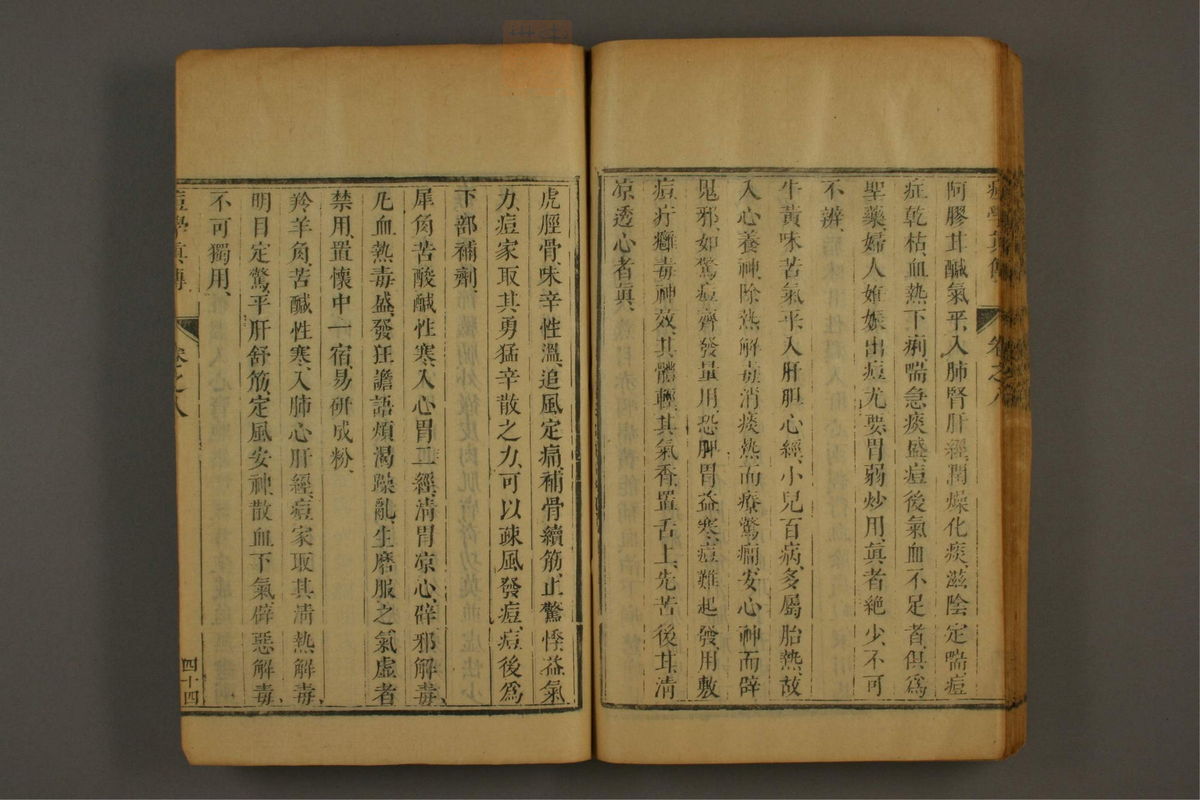 痘學眞傳 卷之八
阿膠甘鹹氣平、入肺腎肝經、潤燥化痰、滋陰定喘、痘
症乾枯、血熱下痢、喘急痰盛、痘後氣血不足者、俱爲
聖藥、婦人姙娠出痘尤要、胃弱炒用、眞者絶少、不可
不辨、
牛黃味苦氣平、入肝胆心經、小兒百病、多屬胎熱、故
入心養神、除熱解毒、消痰熱而療驚癎、安心神而辟
鬼邪、如驚痘齊發量用、恐脾胃益寒、痘難起發、用敷
痘疔癰毒神效、其體輕、其氣香、置舌上、先苦後甘、清
凉透心者眞、
虎脛骨、味辛性溫、追風定痛、補骨續筋、止驚悸、益氣
力、痘家取其勇猛辛散之力、可以疎風發痘、痘後爲
下部補劑、
犀角苦酸鹹性寒、入心胃二經、清胃凉心、辟邪解毒、
凡血熱毒盛、發狂譫語、煩渴躁亂、生磨服之、氣虛者
禁用、置懷中一宿、易研成粉、
羚羊角、苦鹹性寒、入肺心肝經、痘家取其清熱解毒、
明目定驚、平肝舒筋、定風安神、散血下氣、辟惡解毒、
不可獨用、
痘學眞傳 卷之八 四十四